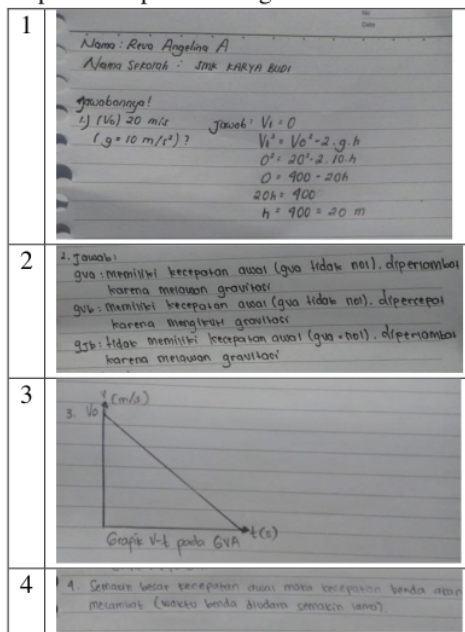 1
No
Date
Nama : Reva Angelina A
Nama Sekolah : SMK KARYA BUDI
Jawabannya!
1.) (Vo) 20 m/s
(g = 10 m/s²) ?
Jawab : Vt = 0
Vt² = Vo² - 2.g.h
0² = 20² - 2.10.h
0 = 400 - 20h
20h = 400
h = 400 = 20 m
2
2. Jawab :
gva : memiliki kecepatan awal (gva tidak nol). diperlambat
karena melawan gravitasi
gvb : memiliki kecepatan awal (gva tidak nol). dipercepat
karena mengikuti gravitasi
gjb : tidak memiliki kecepatan awal (gva = nol). diperlambat
karena melawan gravitasi
3
3.
V (m/s)
Vo
t (s)
Grafik V-t pada GVA
4
4. Semakin besar kecepatan awal maka kecepatan benda akan
melambat (waktu benda diudara semakin lama)